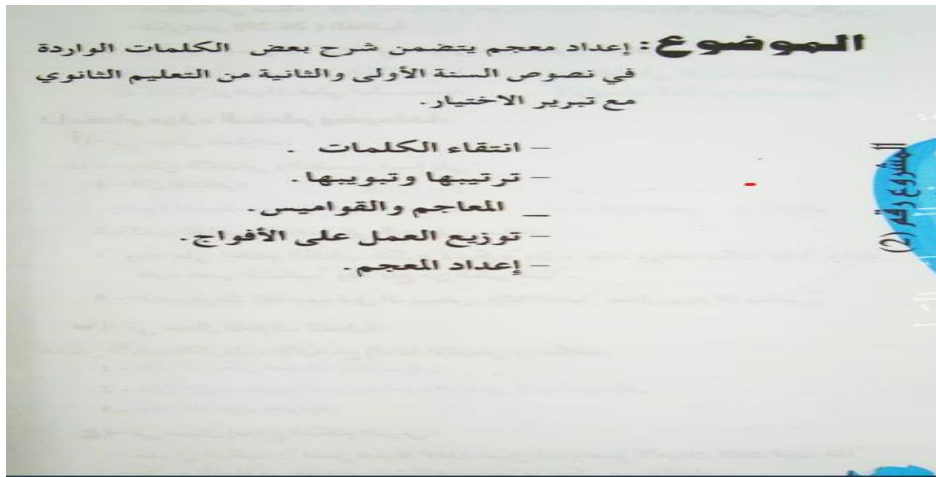 الموضوع: إعداد معجم يتضمن شرح بعض الكلمات الواردة
في نصوص السنة الأولى والثانية من التعليم الثانوي
مع تبرير الاختيار.
– انتقاء الكلمات .
– ترتيبها وتبويبها.
_ المعاجم والقواميس.
– توزيع العمل على الأفواج.
– إعداد المعجم.
المشروع رقم (2)